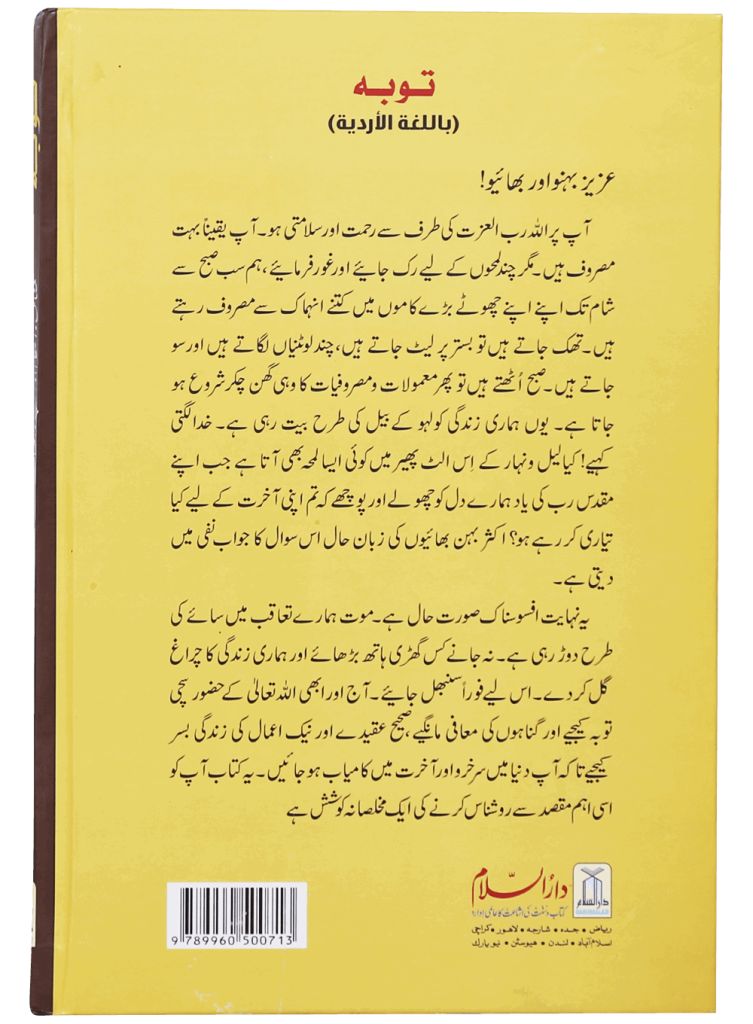 توبه
(باللغة الأردية)
عزیز بہنو اور بھائیو!
آپ پر اللہ رب العزت کی طرف سے رحمت اور سلامتی ہو۔ آپ یقیناً بہت
مصروف ہیں۔ مگر چند لمحوں کے لیے رک جائیے اور غور فرمائیے، ہم سب صبح سے
شام تک اپنے اپنے چھوٹے بڑے کاموں میں کتنے انہماک سے مصروف رہتے
ہیں۔ تھک جاتے ہیں تو بستر پر لیٹ جاتے ہیں، چند لوٹنیاں لگاتے ہیں اور سو
جاتے ہیں۔ صبح اُٹھتے ہیں تو پھر معمولات و مصروفیات کا وہی گھن چکر شروع ہو
جاتا ہے۔ یوں ہماری زندگی کولہو کے بیل کی طرح بیت رہی ہے۔ خدا لگتی
کہیے! کیا لیل و نہار کے اِس الٹ پھیر میں کوئی ایسا لمحہ بھی آتا ہے جب اپنے
مقدس رب کی یاد ہمارے دل کو چھولے اور پوچھے کہ تم اپنی آخرت کے لیے کیا
تیاری کر رہے ہو؟ اکثر بہن بھائیوں کی زبان حال اس سوال کا جواب نفی میں
دیتی ہے۔
یہ نہایت افسوسناک صورت حال ہے۔ موت ہمارے تعاقب میں سائے کی
طرح دوڑ رہی ہے۔ نہ جانے کس گھڑی ہاتھ بڑھائے اور ہماری زندگی کا چراغ
گل کر دے۔ اس لیے فوراً سنبھل جائیے۔ آج اور ابھی اللہ تعالیٰ کے حضور سچی
توبہ کیجیے اور گناہوں کی معافی مانگیے، صحیح عقیدے اور نیک اعمال کی زندگی بسر
کیجیے تاکہ آپ دنیا میں سرخرو اور آخرت میں کامیاب ہو جائیں۔ یہ کتاب آپ کو
اسی اہم مقصد سے روشناس کرنے کی ایک مخلصانہ کوشش ہے
دارالسلام
دارُالسّلام
DARUSSALAM
کتاب و سنت کی اشاعت کا عالمی ادارہ
ریاض • جدہ • شارجہ • لاہور • کراچی
اسلام آباد • لندن • ہیوسٹن • نیو یارک
9 789960 500713